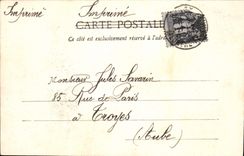 Imprimé Imprimé
CARTE POSTALE
Ce côté est exclusivement réservé à l'adresse
Monsieur Jules Savarin
85 Rue de Paris
à Troyes
(Aube)